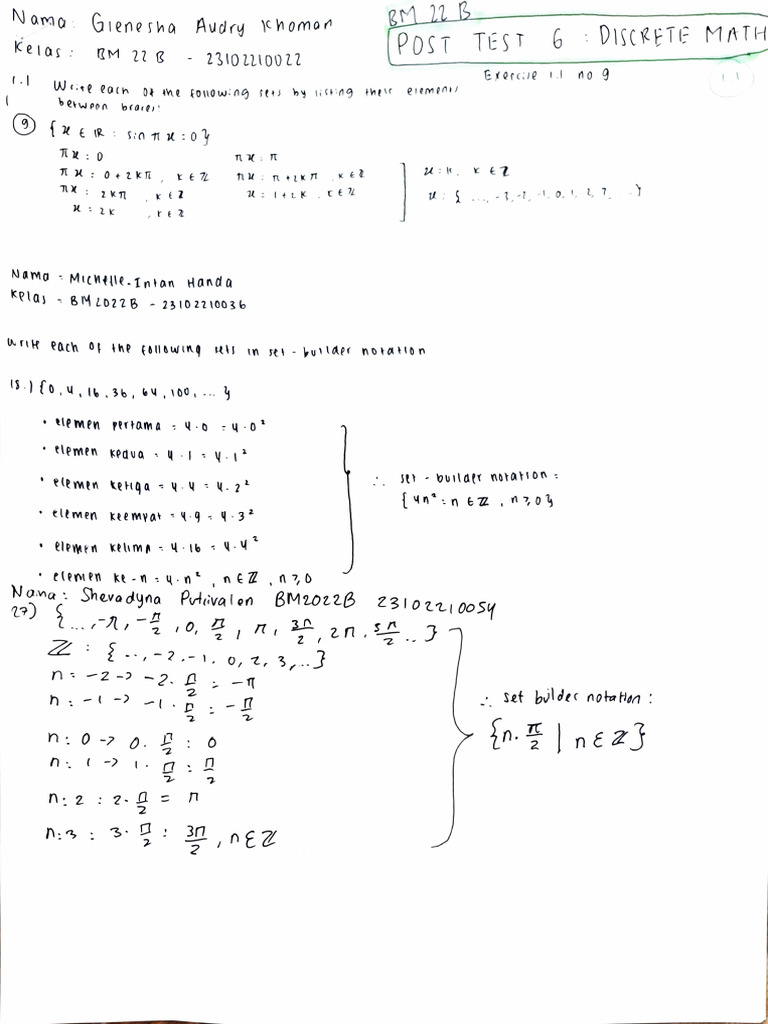 Nama: Glenesha Audry Khoman
BM 22 B
Kelas: BM 22 B - 23102210022
POST TEST 6 : DISCRETE MATH
Exercise 1.1 no 9
1.1
1.1 Write each of the following sets by listing their elements
between braces:
9 {x ∈ IR : sin πx = 0}
πx = 0 πx = π
πx = 0 + 2kπ, k ∈ ℤ πx = π + 2kπ, k ∈ ℤ x = k, k ∈ ℤ
πx = 2kπ, k ∈ ℤ x = 1 + 2k, k ∈ ℤ x = { ..., -3, -2, -1, 0, 1, 2, 3, ... }
x = 2k, k ∈ ℤ
Nama = Michelle Intan Handa
Kelas = BM2022B - 23102210036
Write each of the following sets in set-builder notation
18.) {0, 4, 16, 36, 64, 100, ... }
• elemen pertama = 4·0 = 4·0²
• elemen kedua = 4·1 = 4·1²
• elemen ketiga = 4·4 = 4·2²
• elemen keempat = 4·9 = 4·3²
• elemen kelima = 4·16 = 4·4²
• elemen ke-n = 4·n², n ∈ ℤ, n ≥ 0
∴ set-builder notation =
{4n² : n ∈ ℤ, n ≥ 0}
Nama: Shevadyna Putrivalen BM2022B 23102210054
27) {..., -π, -π/2, 0, π/2, π, 3π/2, 2π, 5π/2 ..}
ℤ : {..., -2, -1, 0, 2, 3, ...}
n = -2 -> -2·π/2 = -π
n = -1 -> -1·π/2 = -π/2
n: 0 -> 0·π/2 : 0
n: 1 -> 1·π/2 : π/2
n: 2 : 2·π/2 = π
n: 3 : 3·π/2 : 3π/2, n ∈ ℤ
∴ set builder notation:
{n·π/2 | n ∈ ℤ}